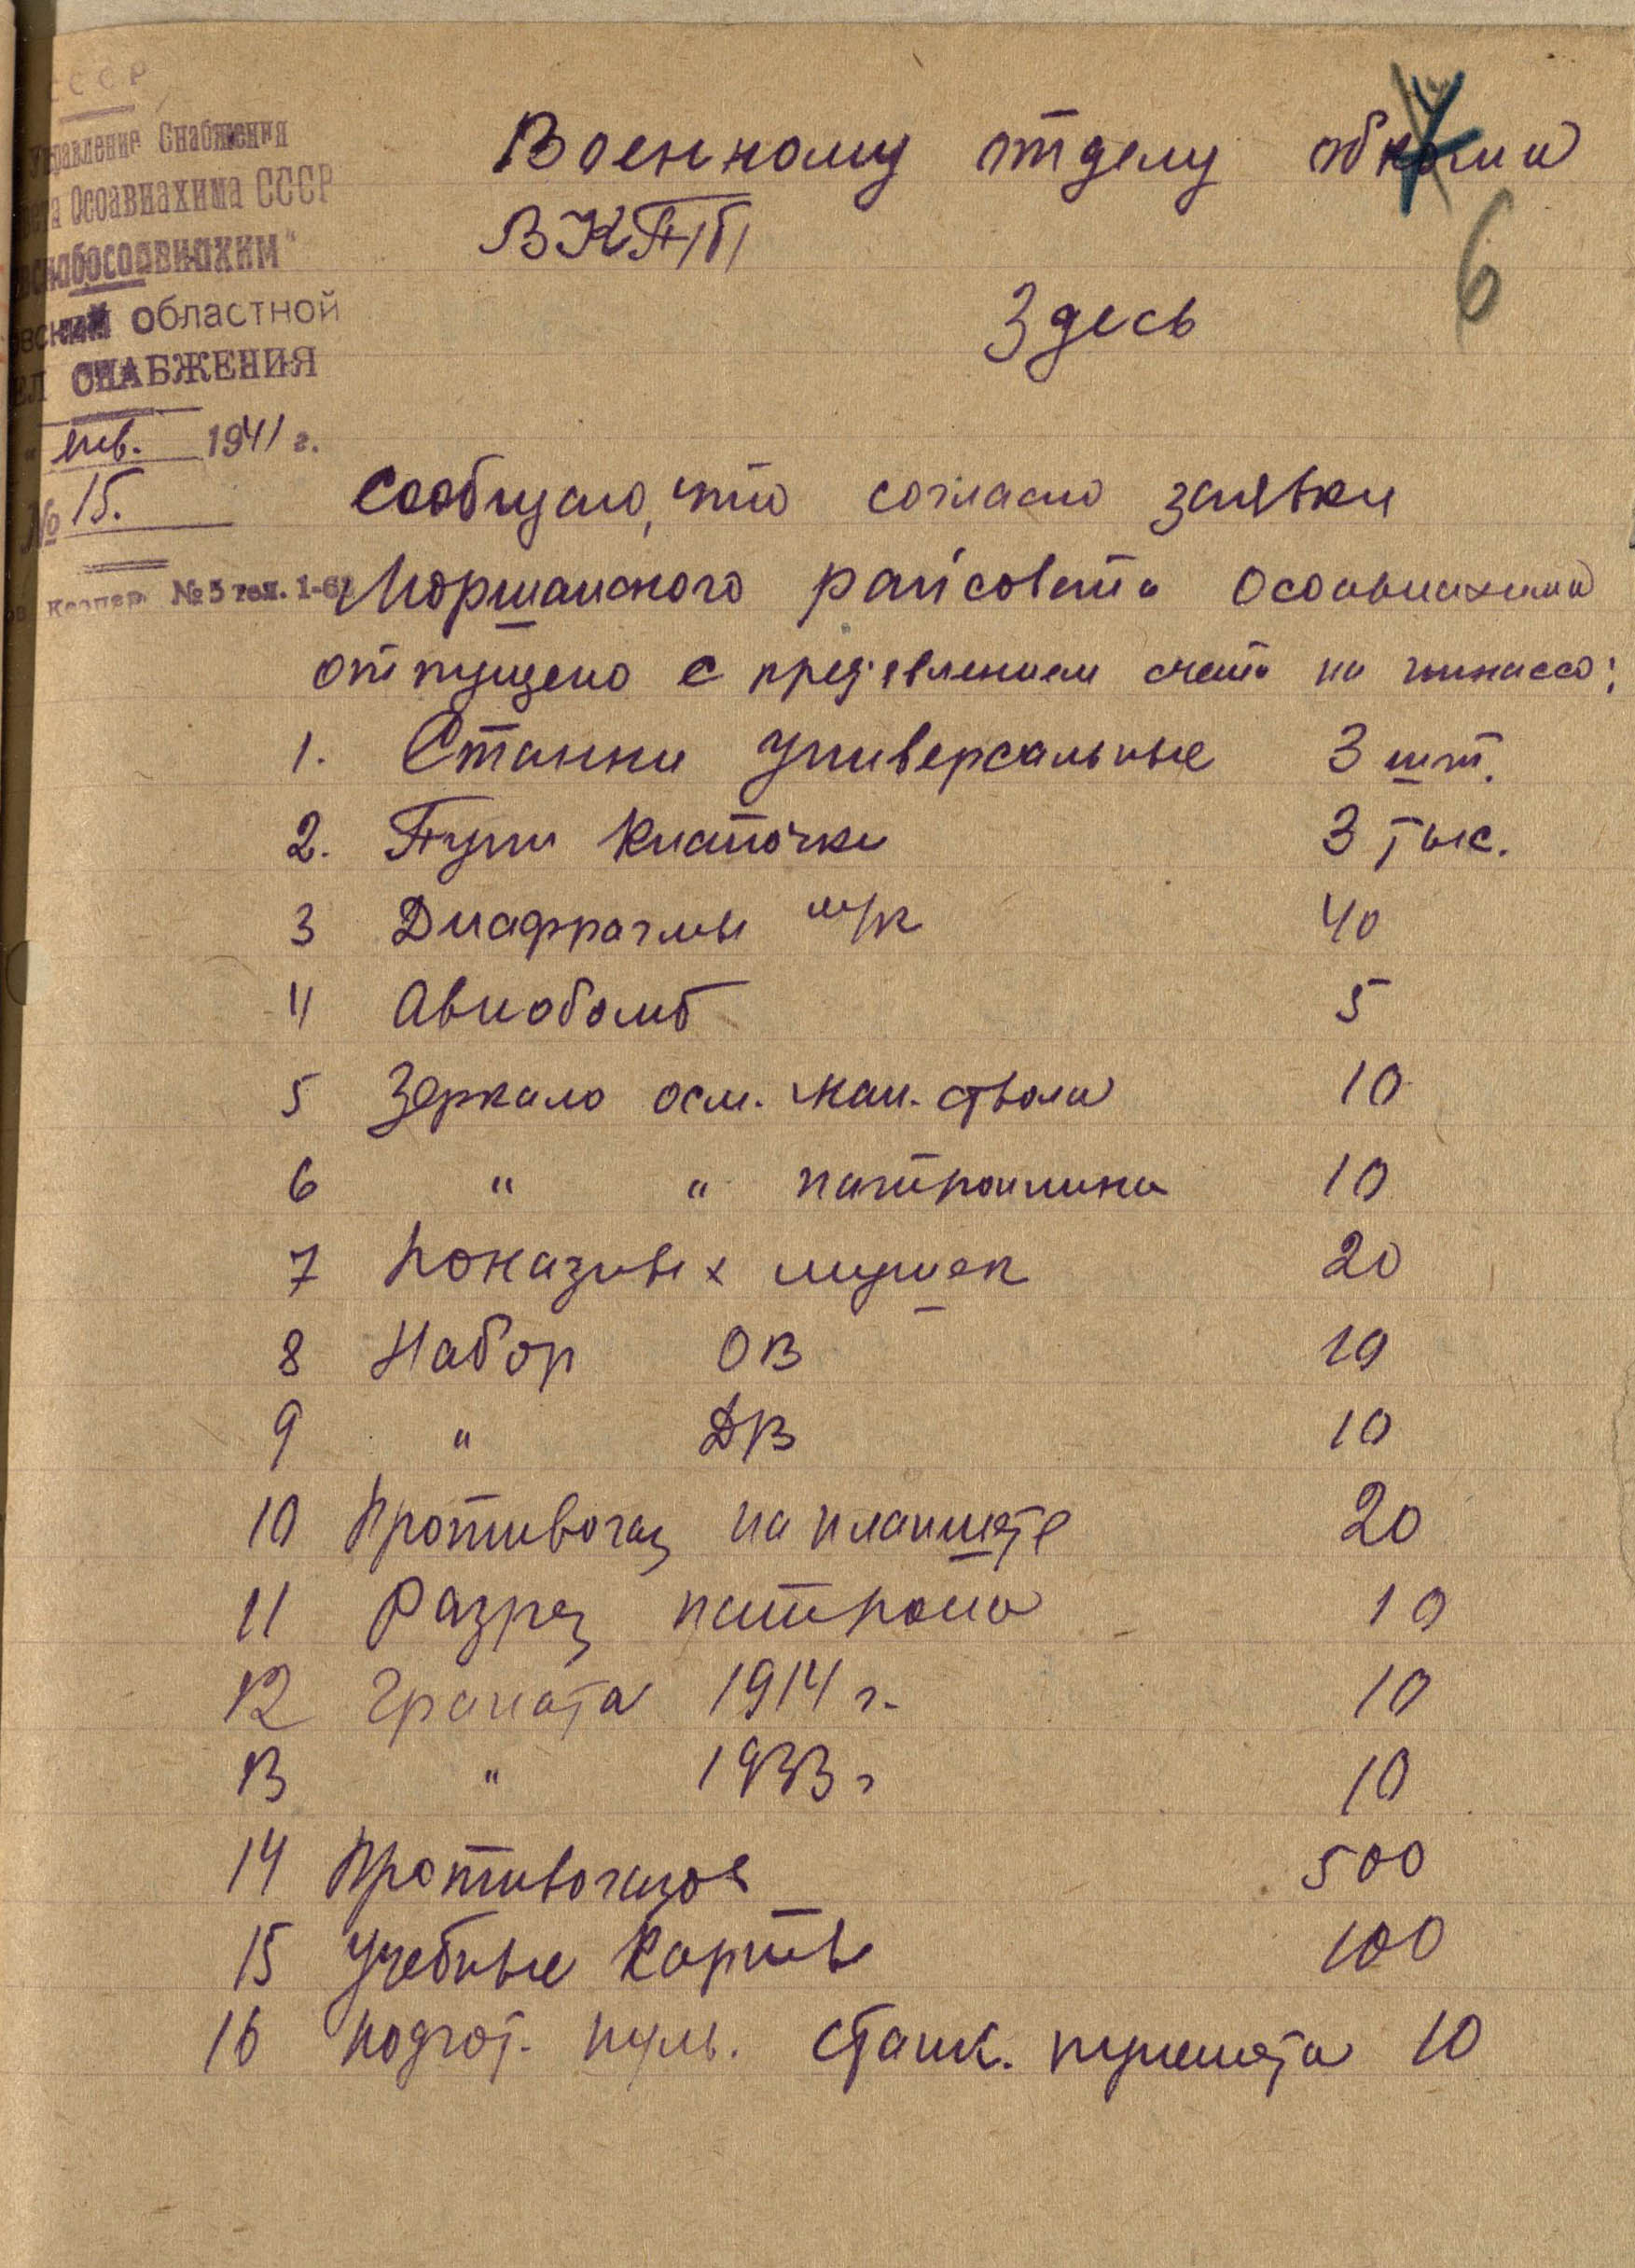 СССР
Управление Снабжения
Осоавиахима СССР
областной
СНАБЖЕНИЯ
" янв. 1941 г.
№ 15.
№ 5 тел. 1-6
6
Военному отделу обкома
ВКП/б/
Здесь
Сообщаю, что согласно заявки
Моршанского райсовета Осоавиахима
отпущено с пред'явлением счета на инкассо:
1. Станки универсальные 3 шт.
2. Пули 3 тыс.
3 Диафрагмы м/к 40
4 Авиобомб 5
5 Зеркало осм. кан. ствола 10
6 " " патронника 10
7 Показных мушек 20
8 Набор ОВ 10
9 " ДВ 10
10 Противогаз на планшете 20
11 Разрез патрона 10
12 Граната 1914 г. 10
13 " 1933 г 10
14 Противогазов 500
15 Учебные карты 100
16 Подгот. пуль. станк. пулемета 10